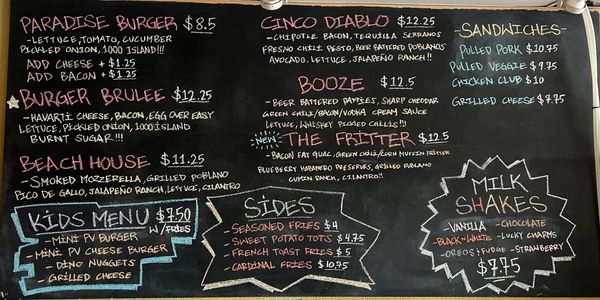 PARADISE BURGER $8.5
-LETTUCE, TOMATO, CUCUMBER
PICKLED ONION, 1000 ISLAND!!!
ADD CHEESE + $1.25
ADD BACON + $1.25
BURGER BRULEE $12.25
-HAVARTI CHEESE, BACON, EGG OVER EASY
LETTUCE, PICKLED ONION, 1000 ISLAND
BURNT SUGAR!!!
BEACH HOUSE $11.25
-SMOKED MOZZERELLA, GRILLED POBLANO
PICO DE GALLO, JALAPEÑO RANCH, LETTUCE, CILANTRO
KIDS MENU $7.50
W/FRIES
-MINI PV BURGER
-MINI PV CHEESE BURGER
-DINO NUGGETS
-GRILLED CHEESE
CINCO DIABLO $12.25
-CHIPOTLE BACON, TEQUILLA SERRANOS
FRESNO CHILI PESTO, BEER BATTERED POBLANOS
AVOCADO, LETTUCE, JALAPEÑO RANCH!!
BOOZE $12.5
-BEER BATTERED PATTIES, SHARP CHEDDAR
GREEN CHILI/BACON/VODKA CREAM SAUCE
LETTUCE, WHISKEY PICKLED CHILIS!!!
NEW THE FRITTER $12.5
-BACON FAT GUAC, GREEN CHILI/CORN MUFFIN FRITTER
BLUEBERRY HABANERO PRESERVES, GRILLED POBLANO
CUMIN RANCH, CILANTRO!!
SIDES
-SEASONED FRIES $4
-SWEET POTATO TOTS $4.75
-FRENCH TOAST FRIES $5
-CARDINAL FRIES $10.75
-SANDWICHES-
PULLED PORK $10.75
PULLED VEGGIE $9.75
CHICKEN CLUB $10
GRILLED CHEESE $7.75
MILK
SHAKES
-VANILLA -CHOCOLATE
-BLACK N WHITE -LUCKY CHARMS
-OREOS & FUDGE -STRAWBERRY
$7.75